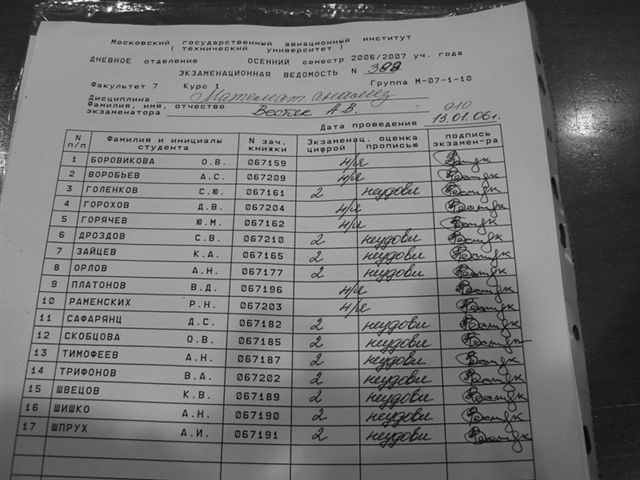 Московский государственный авиационный институт
( технический университет )
ДНЕВНОЕ отделение ОСЕННИЙ семестр 2006/2007 уч. года
ЭКЗАМЕНАЦИОННАЯ ВЕДОМОСТЬ N 388
Факультет 7 Курс 1 Группа М-07-1-10
Дисциплина Математ анализ
Фамилия, имя, отчество
экзаменатора Востяк А.В. 910
Дата проведения 13.01.06г.
N п/п Фамилия и инициалы студента N зач. книжки Экзаменац. оценка цифрой прописью подпись экзамен-ра
1 БОРОВИКОВА О.В. 067159 н/я
2 ВОРОБЬЕВ А.С. 067209 н/я
3 ГОЛЕНКОВ С.Ю. 067161 2 неудовл
4 ГОРОХОВ Д.В. 067204 н/я
5 ГОРЯЧЕВ Ю.М. 067162 н/я
6 ДРОЗДОВ С.В. 067210 2 неудовл
7 ЗАЙЦЕВ К.А. 067165 2 неудовл
8 ОРЛОВ А.Н. 067177 2 неудовл
9 ПЛАТОНОВ В.Д. 067196 н/я
10 РАМЕНСКИХ Р.Н. 067203 н/я
11 САФАРЯНЦ Д.С. 067182 2 неудовл
12 СКОБЦОВА О.В. 067185 2 неудовл
13 ТИМОФЕЕВ А.Н. 067187 2 неудовл
14 ТРИФОНОВ В.А. 067202 2 неудовл
15 ШВЕЦОВ К.В. 067189 2 неудовл
16 ШИШКО А.Н. 067190 2 неудовл
17 ШПРУХ А.И. 067191 2 неудовл